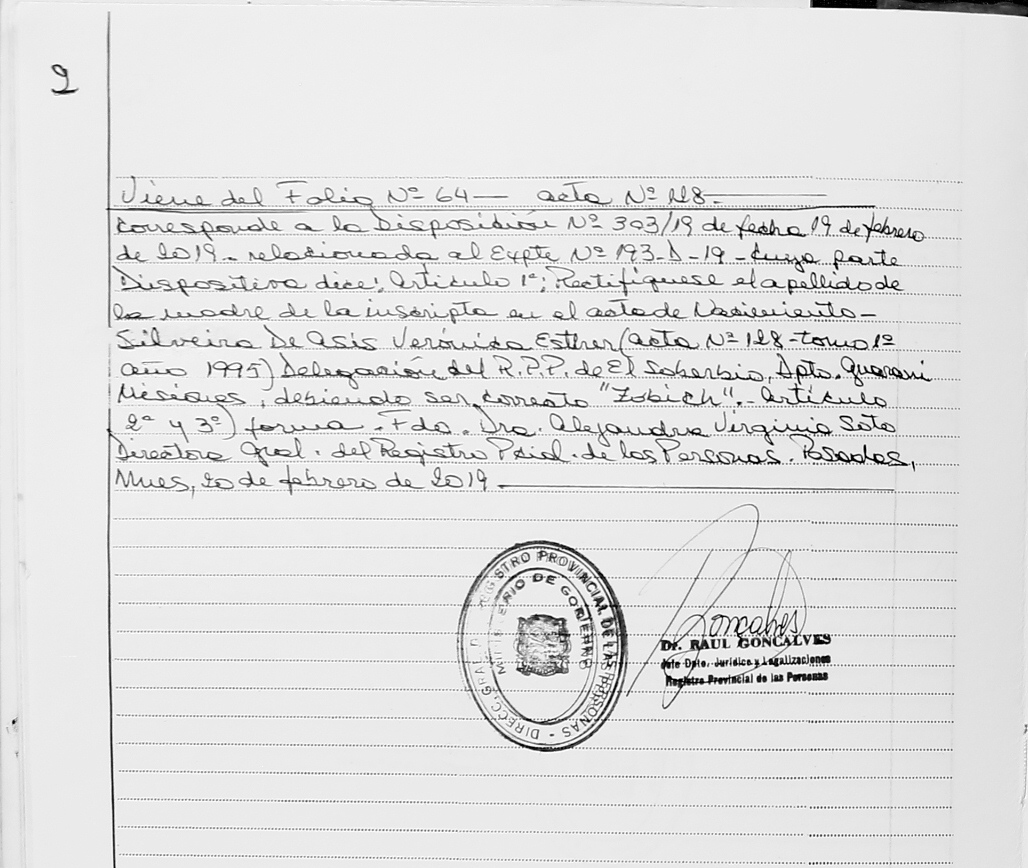 2
Viene del Folio Nº 64 — acta Nº 128
Corresponde a la Disposición Nº 303/19 de fecha 19 de febrero
de 2019 - relacionada al Expte Nº 193-D-19 - Cuya parte
Dispositiva dice: Articulo 1º: Rectifíquese el apellido de
la madre de la inscripta en el acta de Nacimiento -
Silveira De Asis Verónica Esther (acta Nº 128 - tomo 1º
año 1995) Delegación del R.P.P. de El Soberbio, Dpto. Guarani
Misiones, debiendo ser correcto "Zobich". - Articulo
2º y 3º) forma - Fdo. Dra. Alejandra Virginia Soto
Directora Gral. del Registro Pcial. de las Personas. Posadas,
Mnes, 20 de febrero de 2019
DIRECC. GRAL. REGISTRO PROVINCIAL DE LAS PERSONAS -
MINISTERIO DE GOBIERNO
Goncalves
Dr. RAUL GONCALVES
Jefe Dpto. Jurídico y Legalizaciones
Registro Provincial de las Personas